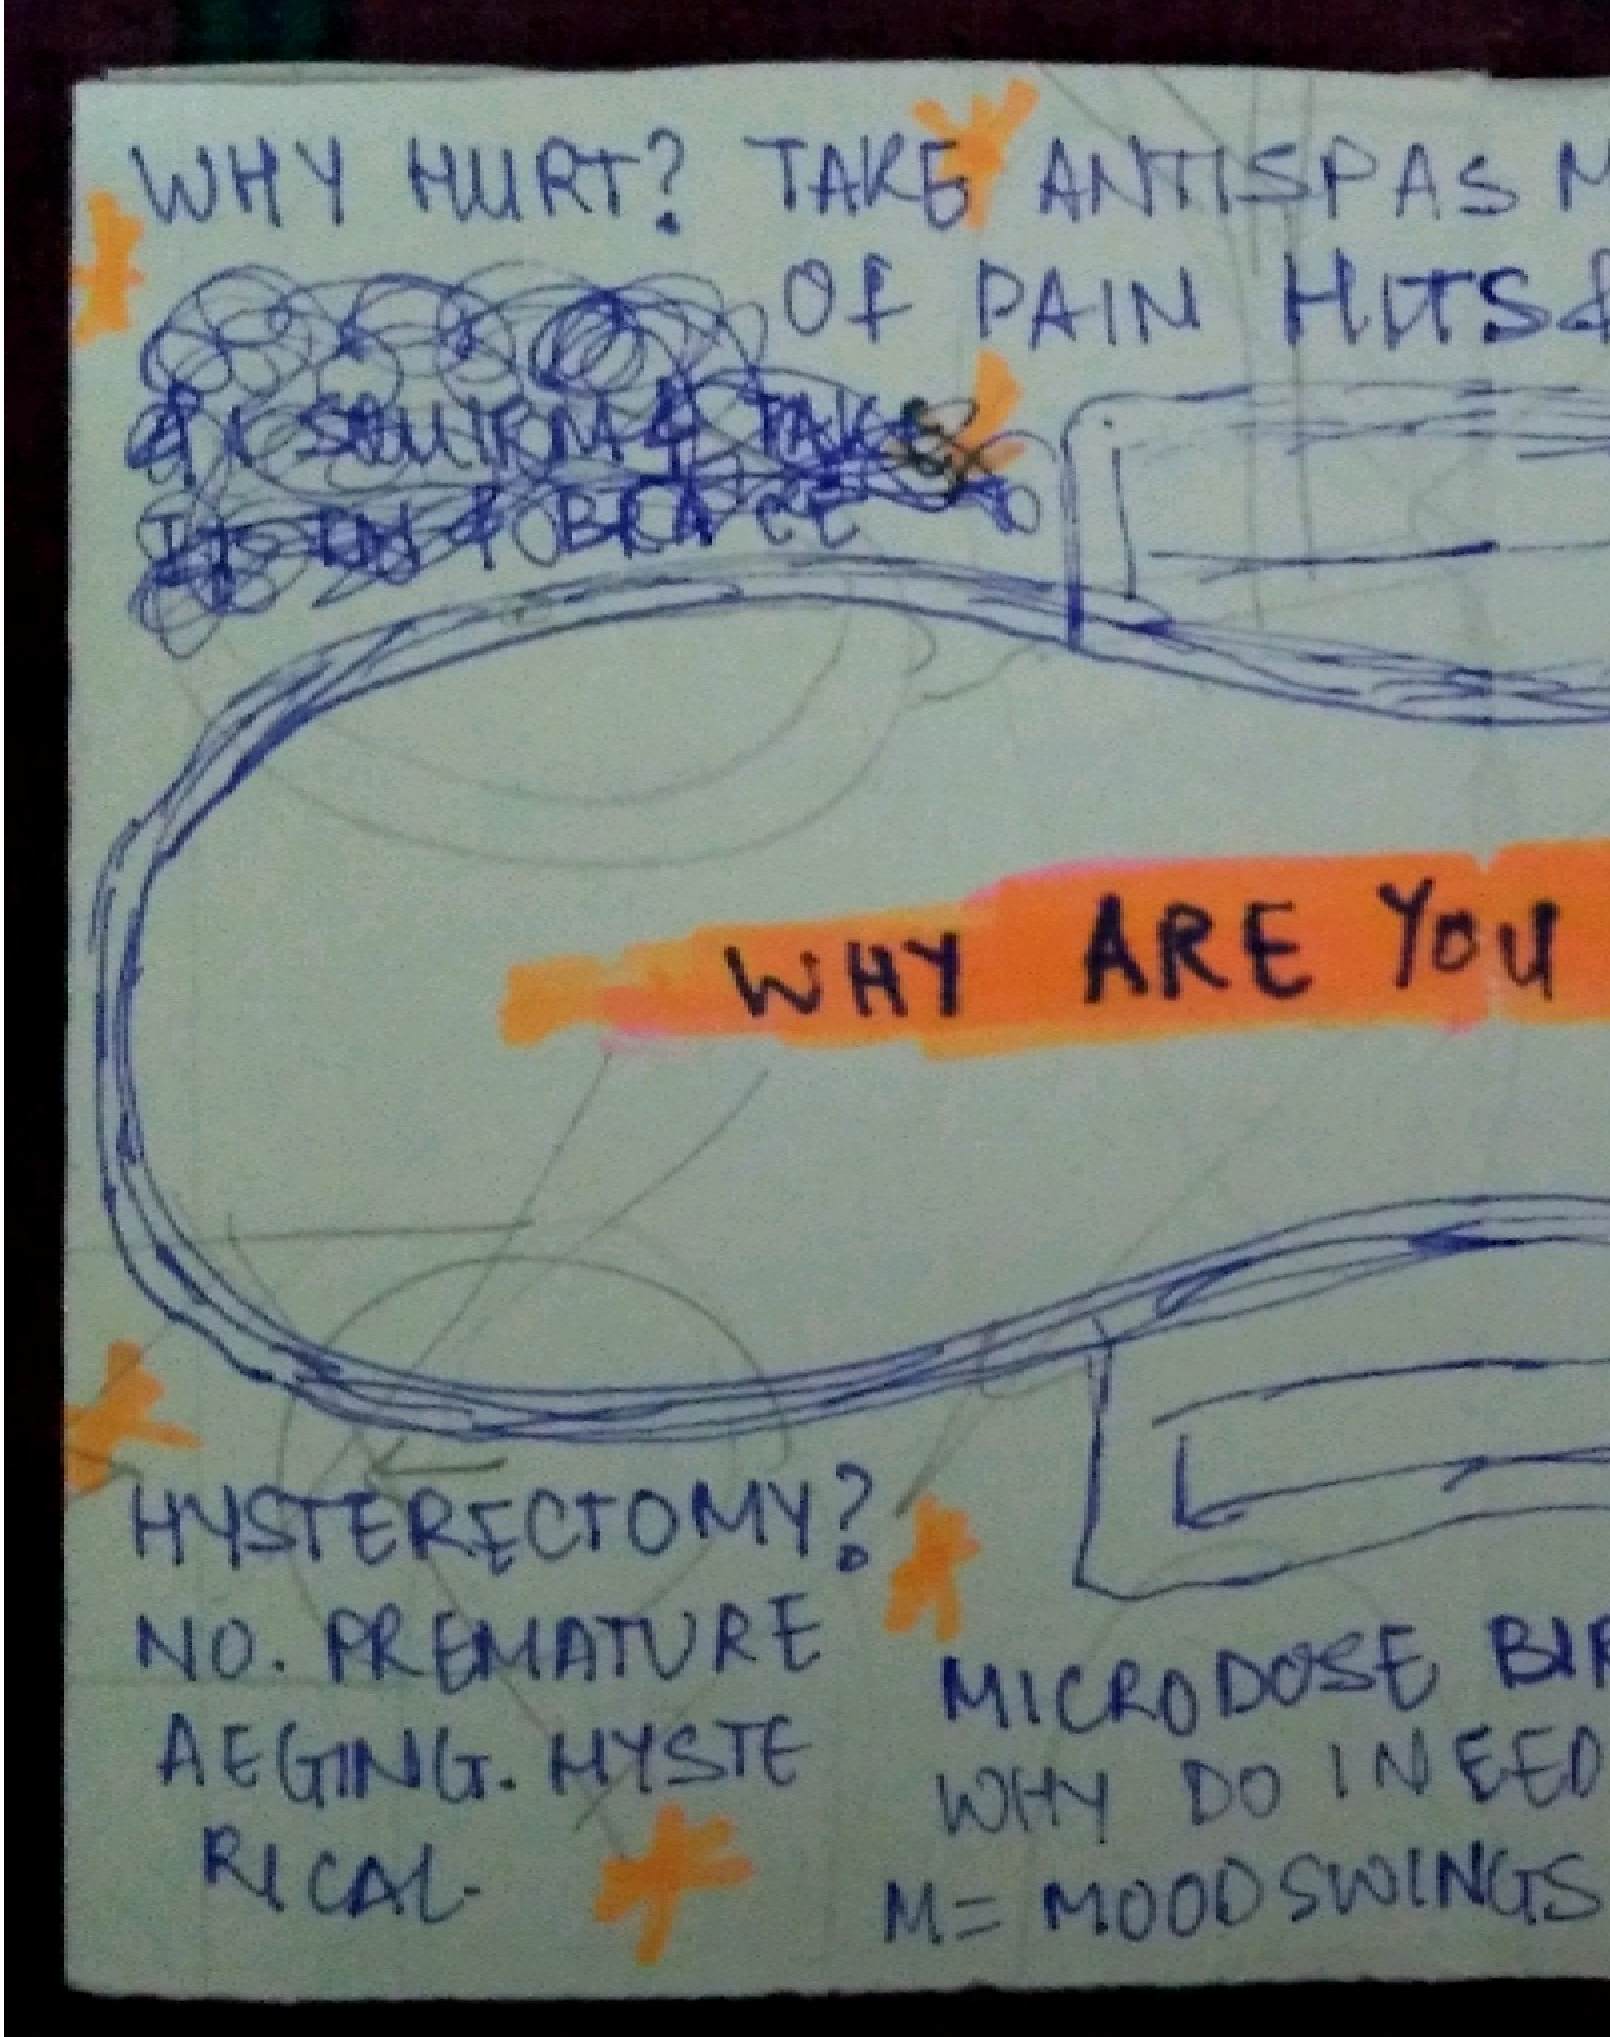 WHY HURT? TAKE ANTISPASM
OF PAIN HITS &
& I SQUIRM & TAKE
IT IN & BRACE
WHY ARE YOU
HYSTERECTOMY?
NO. PREMATURE
AEGING. HYSTE
RICAL.
MICRODOSE BIR
WHY DO I NEED
M= MOODSWINGS